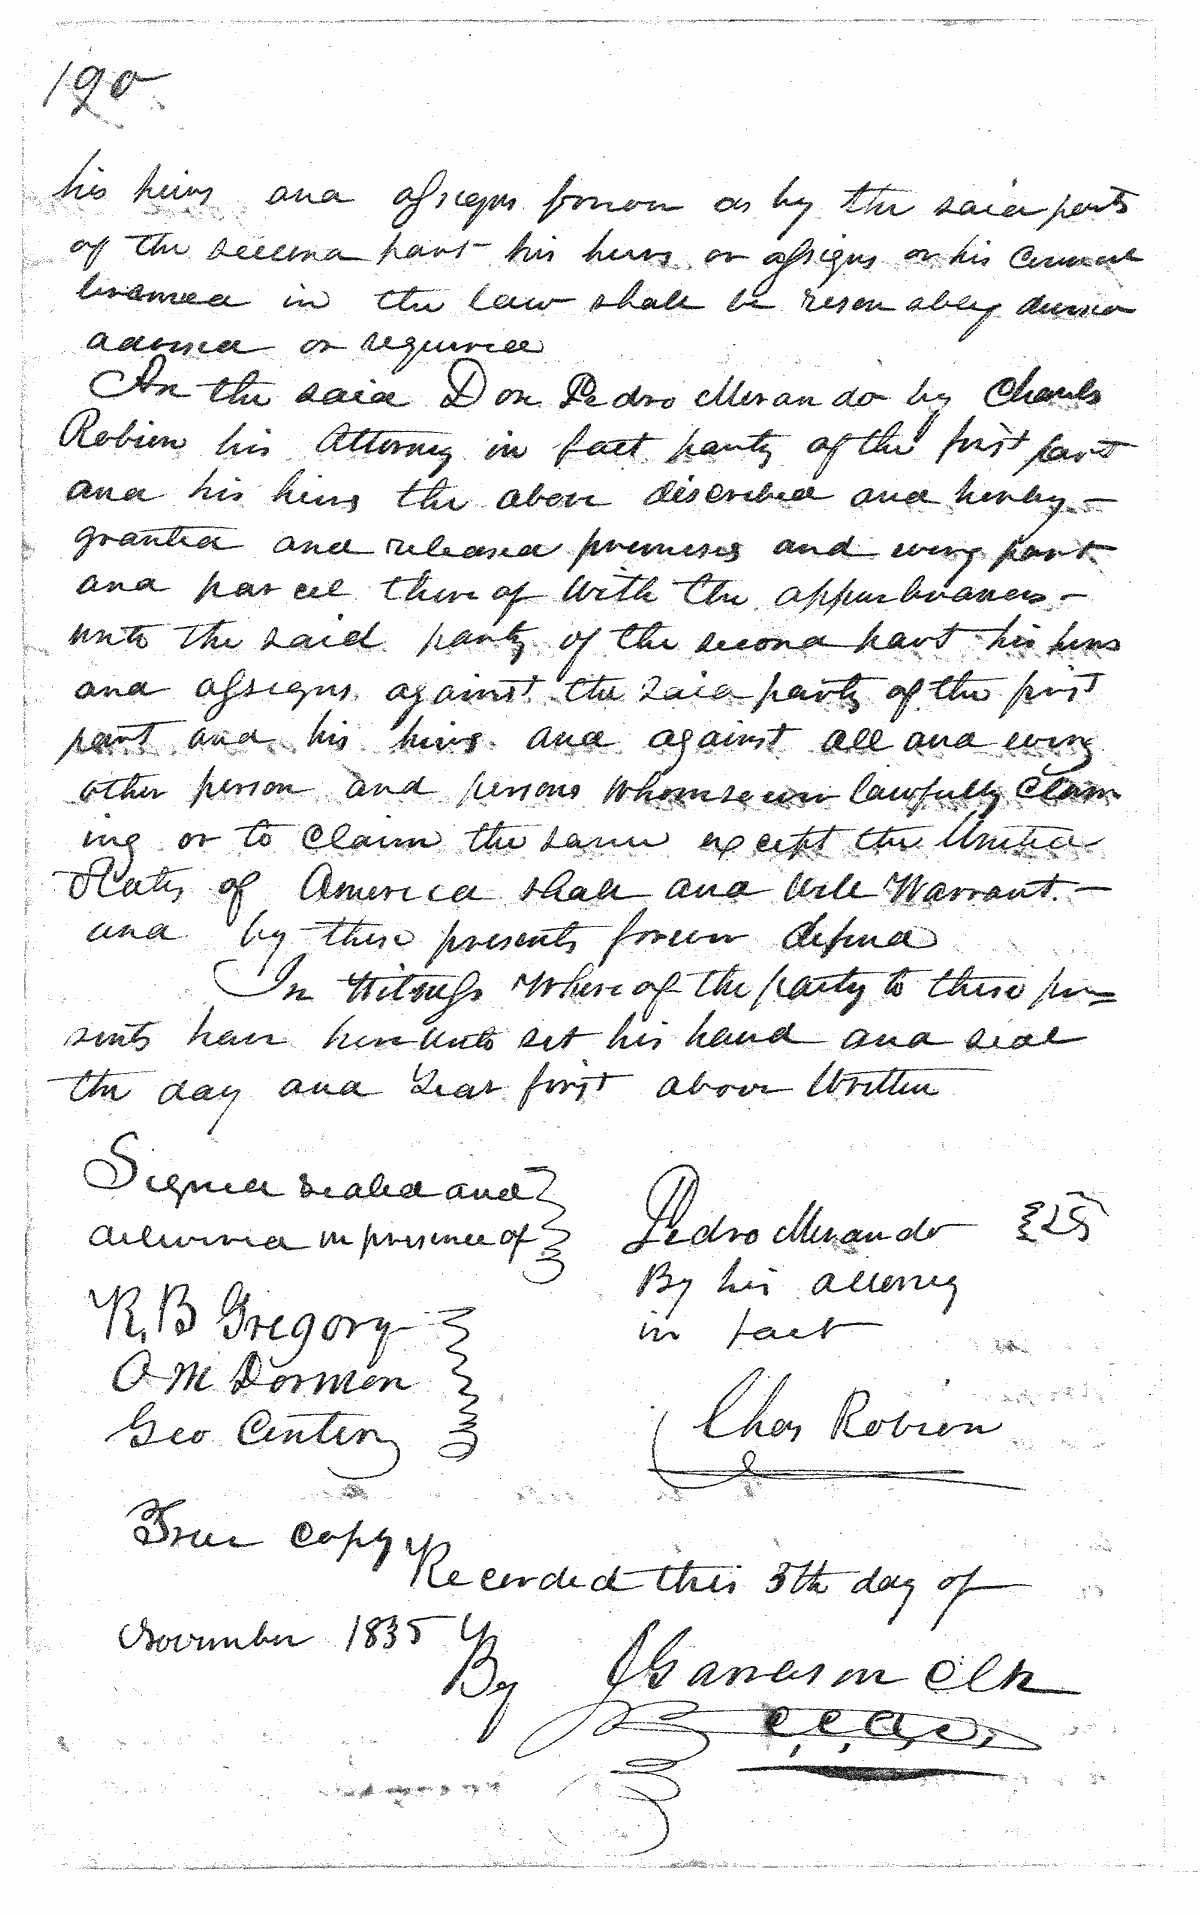 190
his heirs and assigns forever as by the said party
of the second part his heirs or assigns or his Council
learned in the law shall be reson ably devised
advised or required
An the said Don Pedro Merando by Charls
Robion his Attorney in fact party of the first part
and his heirs the above discribed and hereby —
granted and released premises and every part
and parcel there of With the appurtenances —
unto the said party of the second part his heirs
and assigns against the said party of the first
part and his heirs and against all and every
other person and persons Whomsoever lawfully Claim
ing or to Claim the same except the United
States of America shall and Will Warrant. —
and by these presents forever defend
In Witness Where of the party to these pre=
sents have hereunto set his hand and seal
the day and Year first above Written
Signed sealed and
delivered in presence of
Pedro Merando {LS}
By his attorney
in fact
R. B Gregory
O M Dorman
Geo Center
Chas Robion
True Copy
Recorded this 5th day of
November 1835
By J Garrason Clk
C, C, A, C,